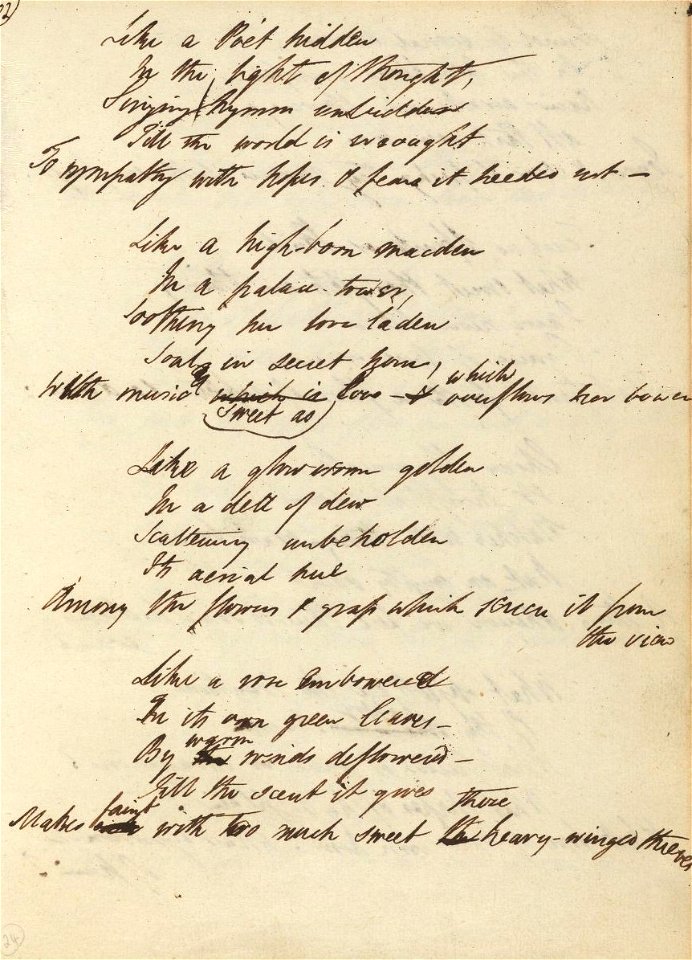 Like a Poet hidden
In the light of thought,
Singing hymns unbidden
Till the world is wrought
To sympathy with hopes & fears it heeded not —
Like a high-born maiden
In a palace-tower,
Soothing her love laden
Soul in secret hour,
which
With music which is love — & overflows her bower
sweet as
Like a glowworm golden
In a dell of dew
Scattering unbeholden
Its aerial hue
Among the flowers & grass which screen it from
the view
Like a rose embowered
In its own green leaves —
warm
By the winds deflowered —
Till the scent it gives
faint these
Makes with too much sweet the heavy-winged thieves
24